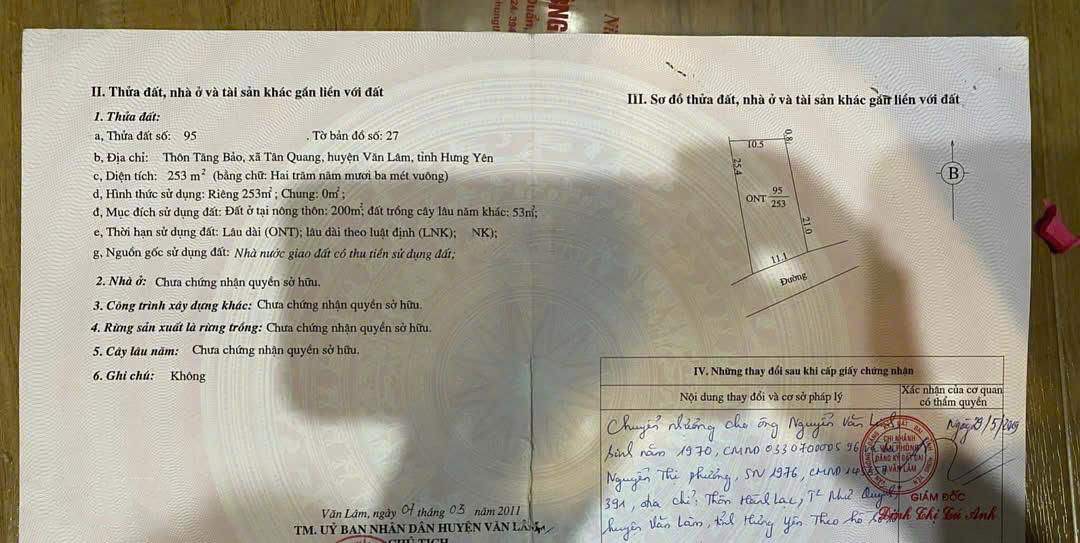 II. Thửa đất, nhà ở và tài sản khác gắn liền với đất
1. Thửa đất:
a, Thửa đất số: 95 . Tờ bản đồ số: 27
b, Địa chỉ: Thôn Tăng Bảo, xã Tân Quang, huyện Văn Lâm, tỉnh Hưng Yên
c, Diện tích: 253 m² (bằng chữ: Hai trăm năm mươi ba mét vuông)
d, Hình thức sử dụng: Riêng 253m²; Chung: 0m²;
đ, Mục đích sử dụng đất: Đất ở tại nông thôn: 200m²; đất trồng cây lâu năm khác: 53m²;
e, Thời hạn sử dụng đất: Lâu dài (ONT); lâu dài theo luật định (LNK); NK);
g, Nguồn gốc sử dụng đất: Nhà nước giao đất có thu tiền sử dụng đất;
2. Nhà ở: Chưa chứng nhận quyền sở hữu.
3. Công trình xây dựng khác: Chưa chứng nhận quyền sở hữu.
4. Rừng sản xuất là rừng trồng: Chưa chứng nhận quyền sở hữu.
5. Cây lâu năm: Chưa chứng nhận quyền sở hữu.
6. Ghi chú: Không
Văn Lâm, ngày 01 tháng 03 năm 2011
TM. UỶ BAN NHÂN DÂN HUYỆN VĂN LÂM
CHỦ TỊCH
III. Sơ đồ thửa đất, nhà ở và tài sản khác gắn liền với đất
10.5
0.8
25.4
ONT 95
253
21.0
11.1
Đường
B
IV. Những thay đổi sau khi cấp giấy chứng nhận
Nội dung thay đổi và cơ sở pháp lý
Xác nhận của cơ quan
có thẩm quyền
Chuyển nhượng cho ông Nguyễn Văn
Sinh năm 1970, CMND
Nguyễn Thị Phường, SN 1976, CMND
391, địa chỉ: Thôn Hành Lạc, TT Như Quỳnh
huyện Văn Lâm, tỉnh Hưng Yên. Theo hồ sơ
Ngày 29/5/2019
CHI NHÁNH
VĂN PHÒNG
ĐĂNG KÝ ĐẤT ĐAI
VĂN LÂM
GIÁM ĐỐC
Đinh Thị Tú Anh